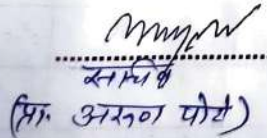 सचिव
(प्रा. अरुण पोटे)